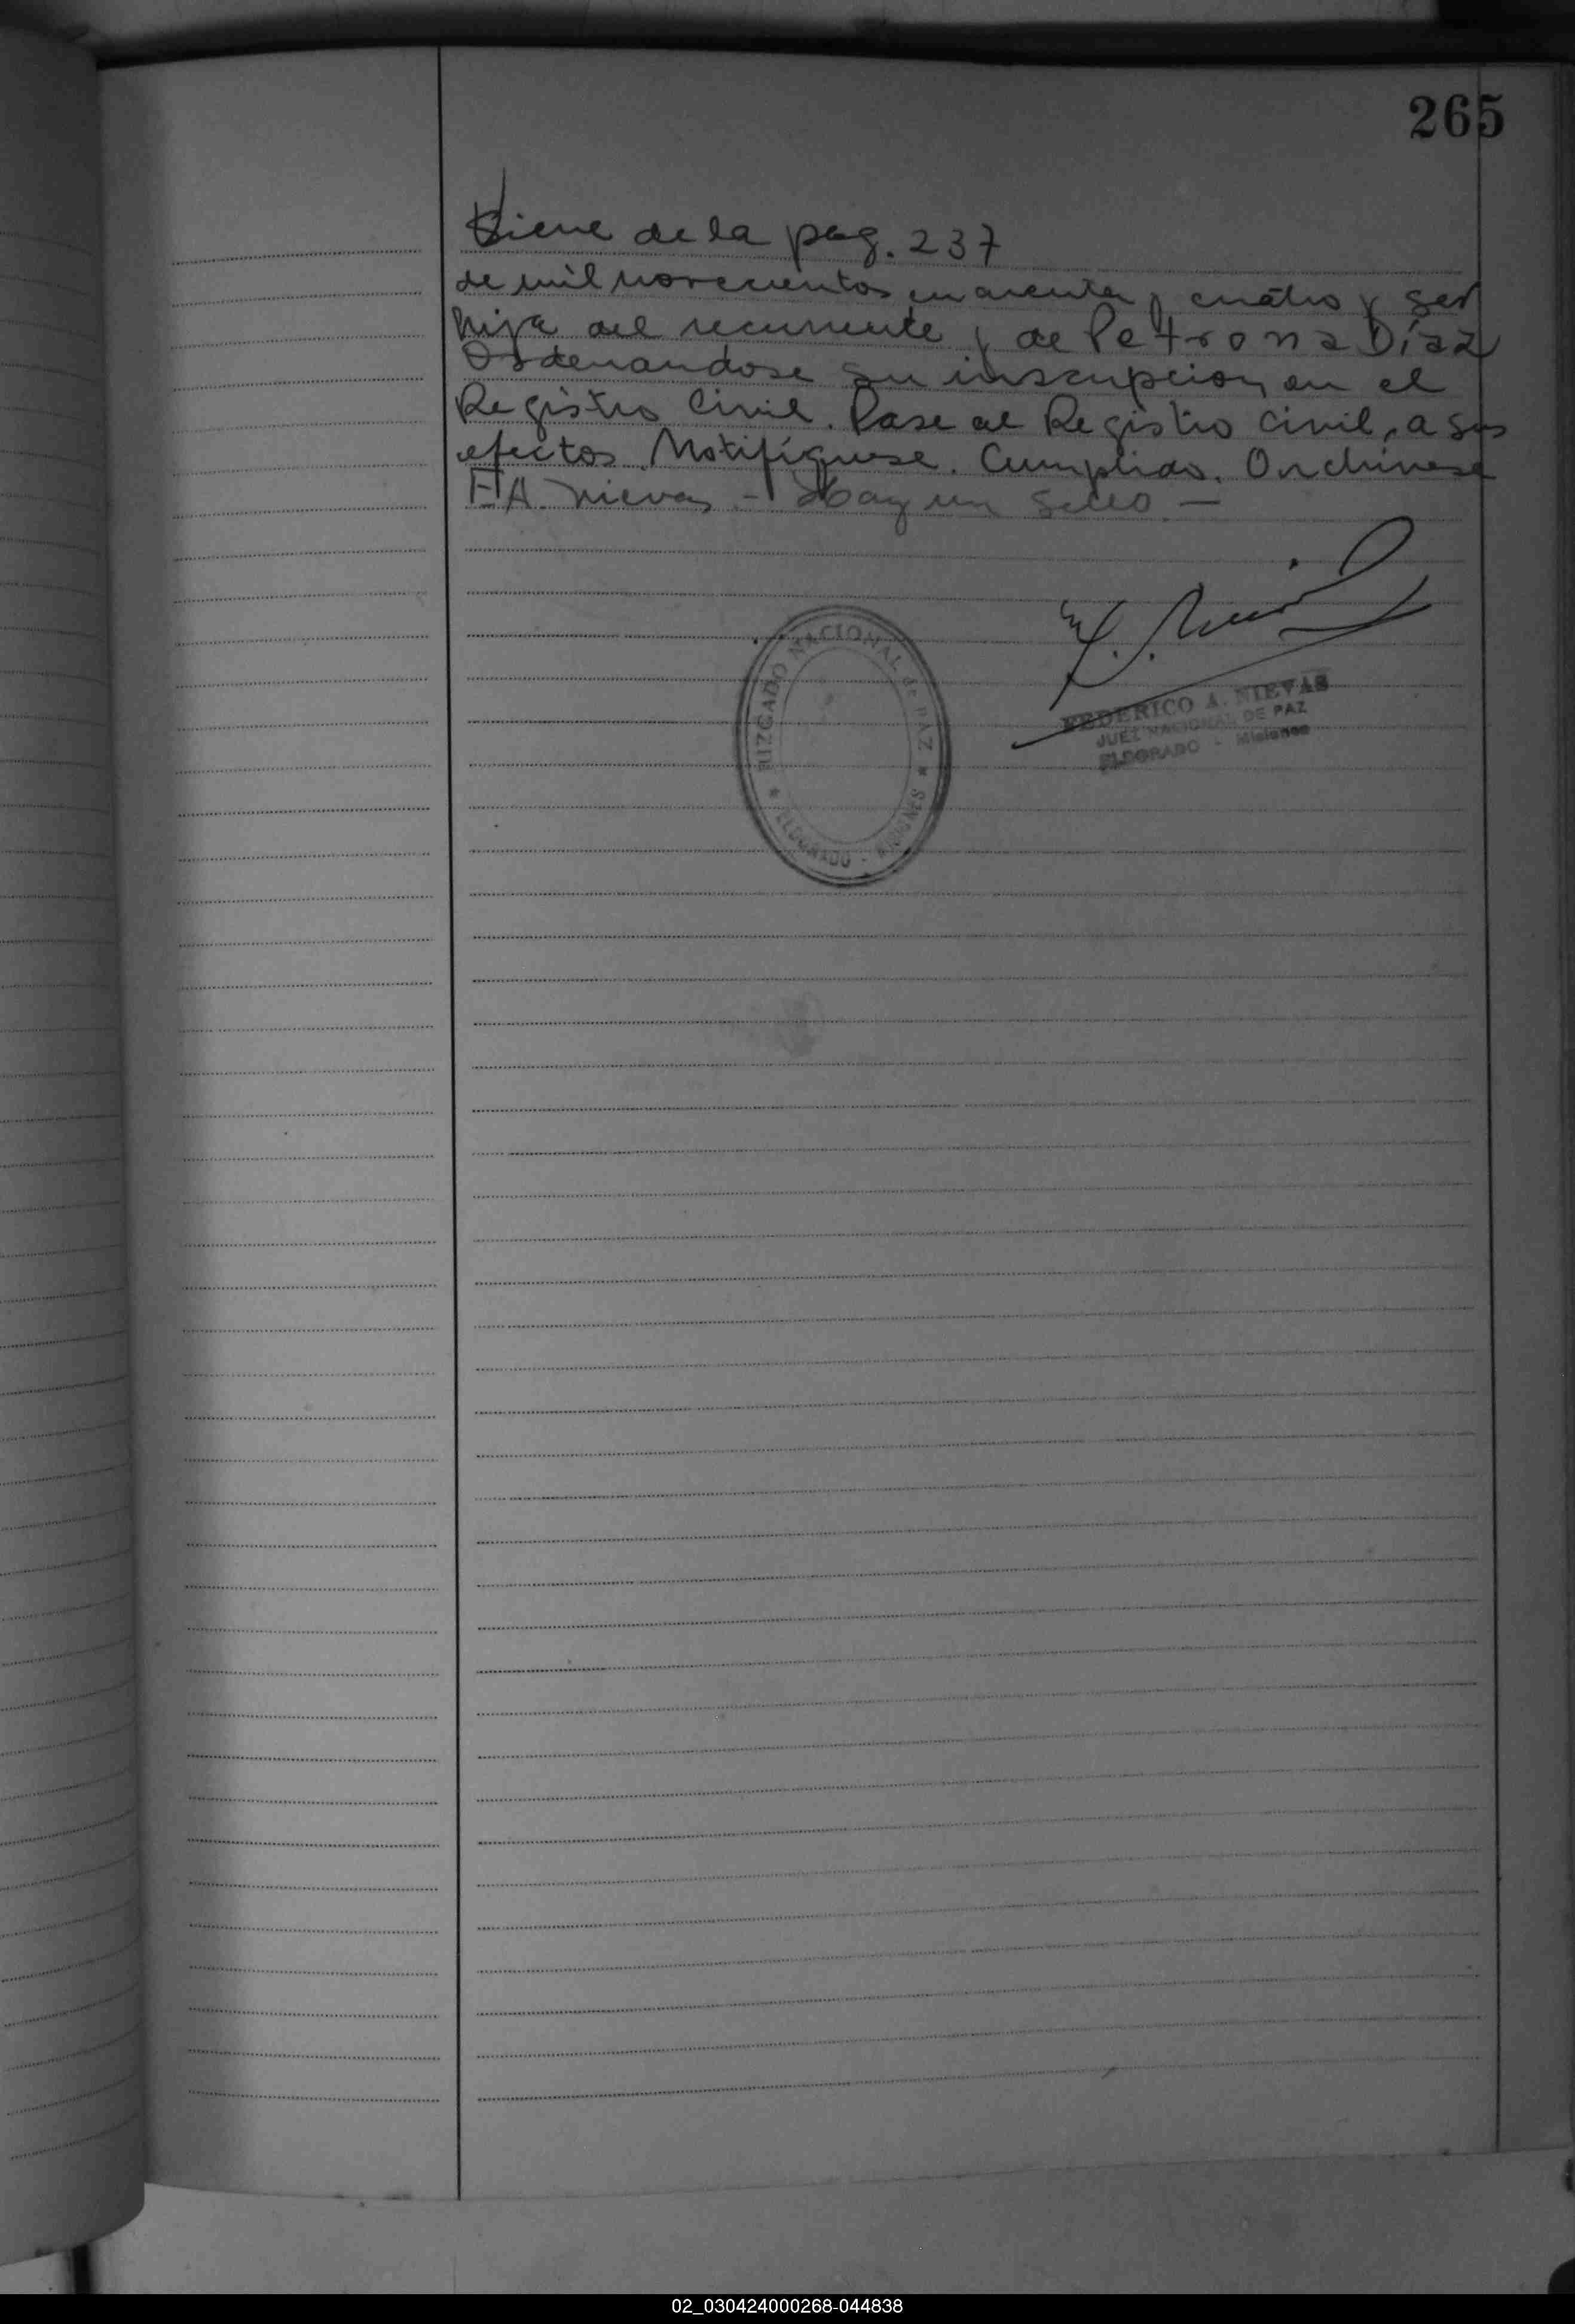 265
Viene de la pag. 237
de mil novecientos cuarenta y cuatro y ser
hija del recurrente y de Petrona Díaz
Ordenandose su inscripcion en el
Registro Civil. Pase al Registro Civil, a sus
efectos. Notifíquese. Cumplido. Archivese
F.A. Nievas - Hay un sello -
JUZGADO NACIONAL de PAZ * ELDORADO - MISIONES *
FEDERICO A. NIEVAS
JUEZ NACIONAL DE PAZ
ELDORADO - Misiones
02_030424000268-044838